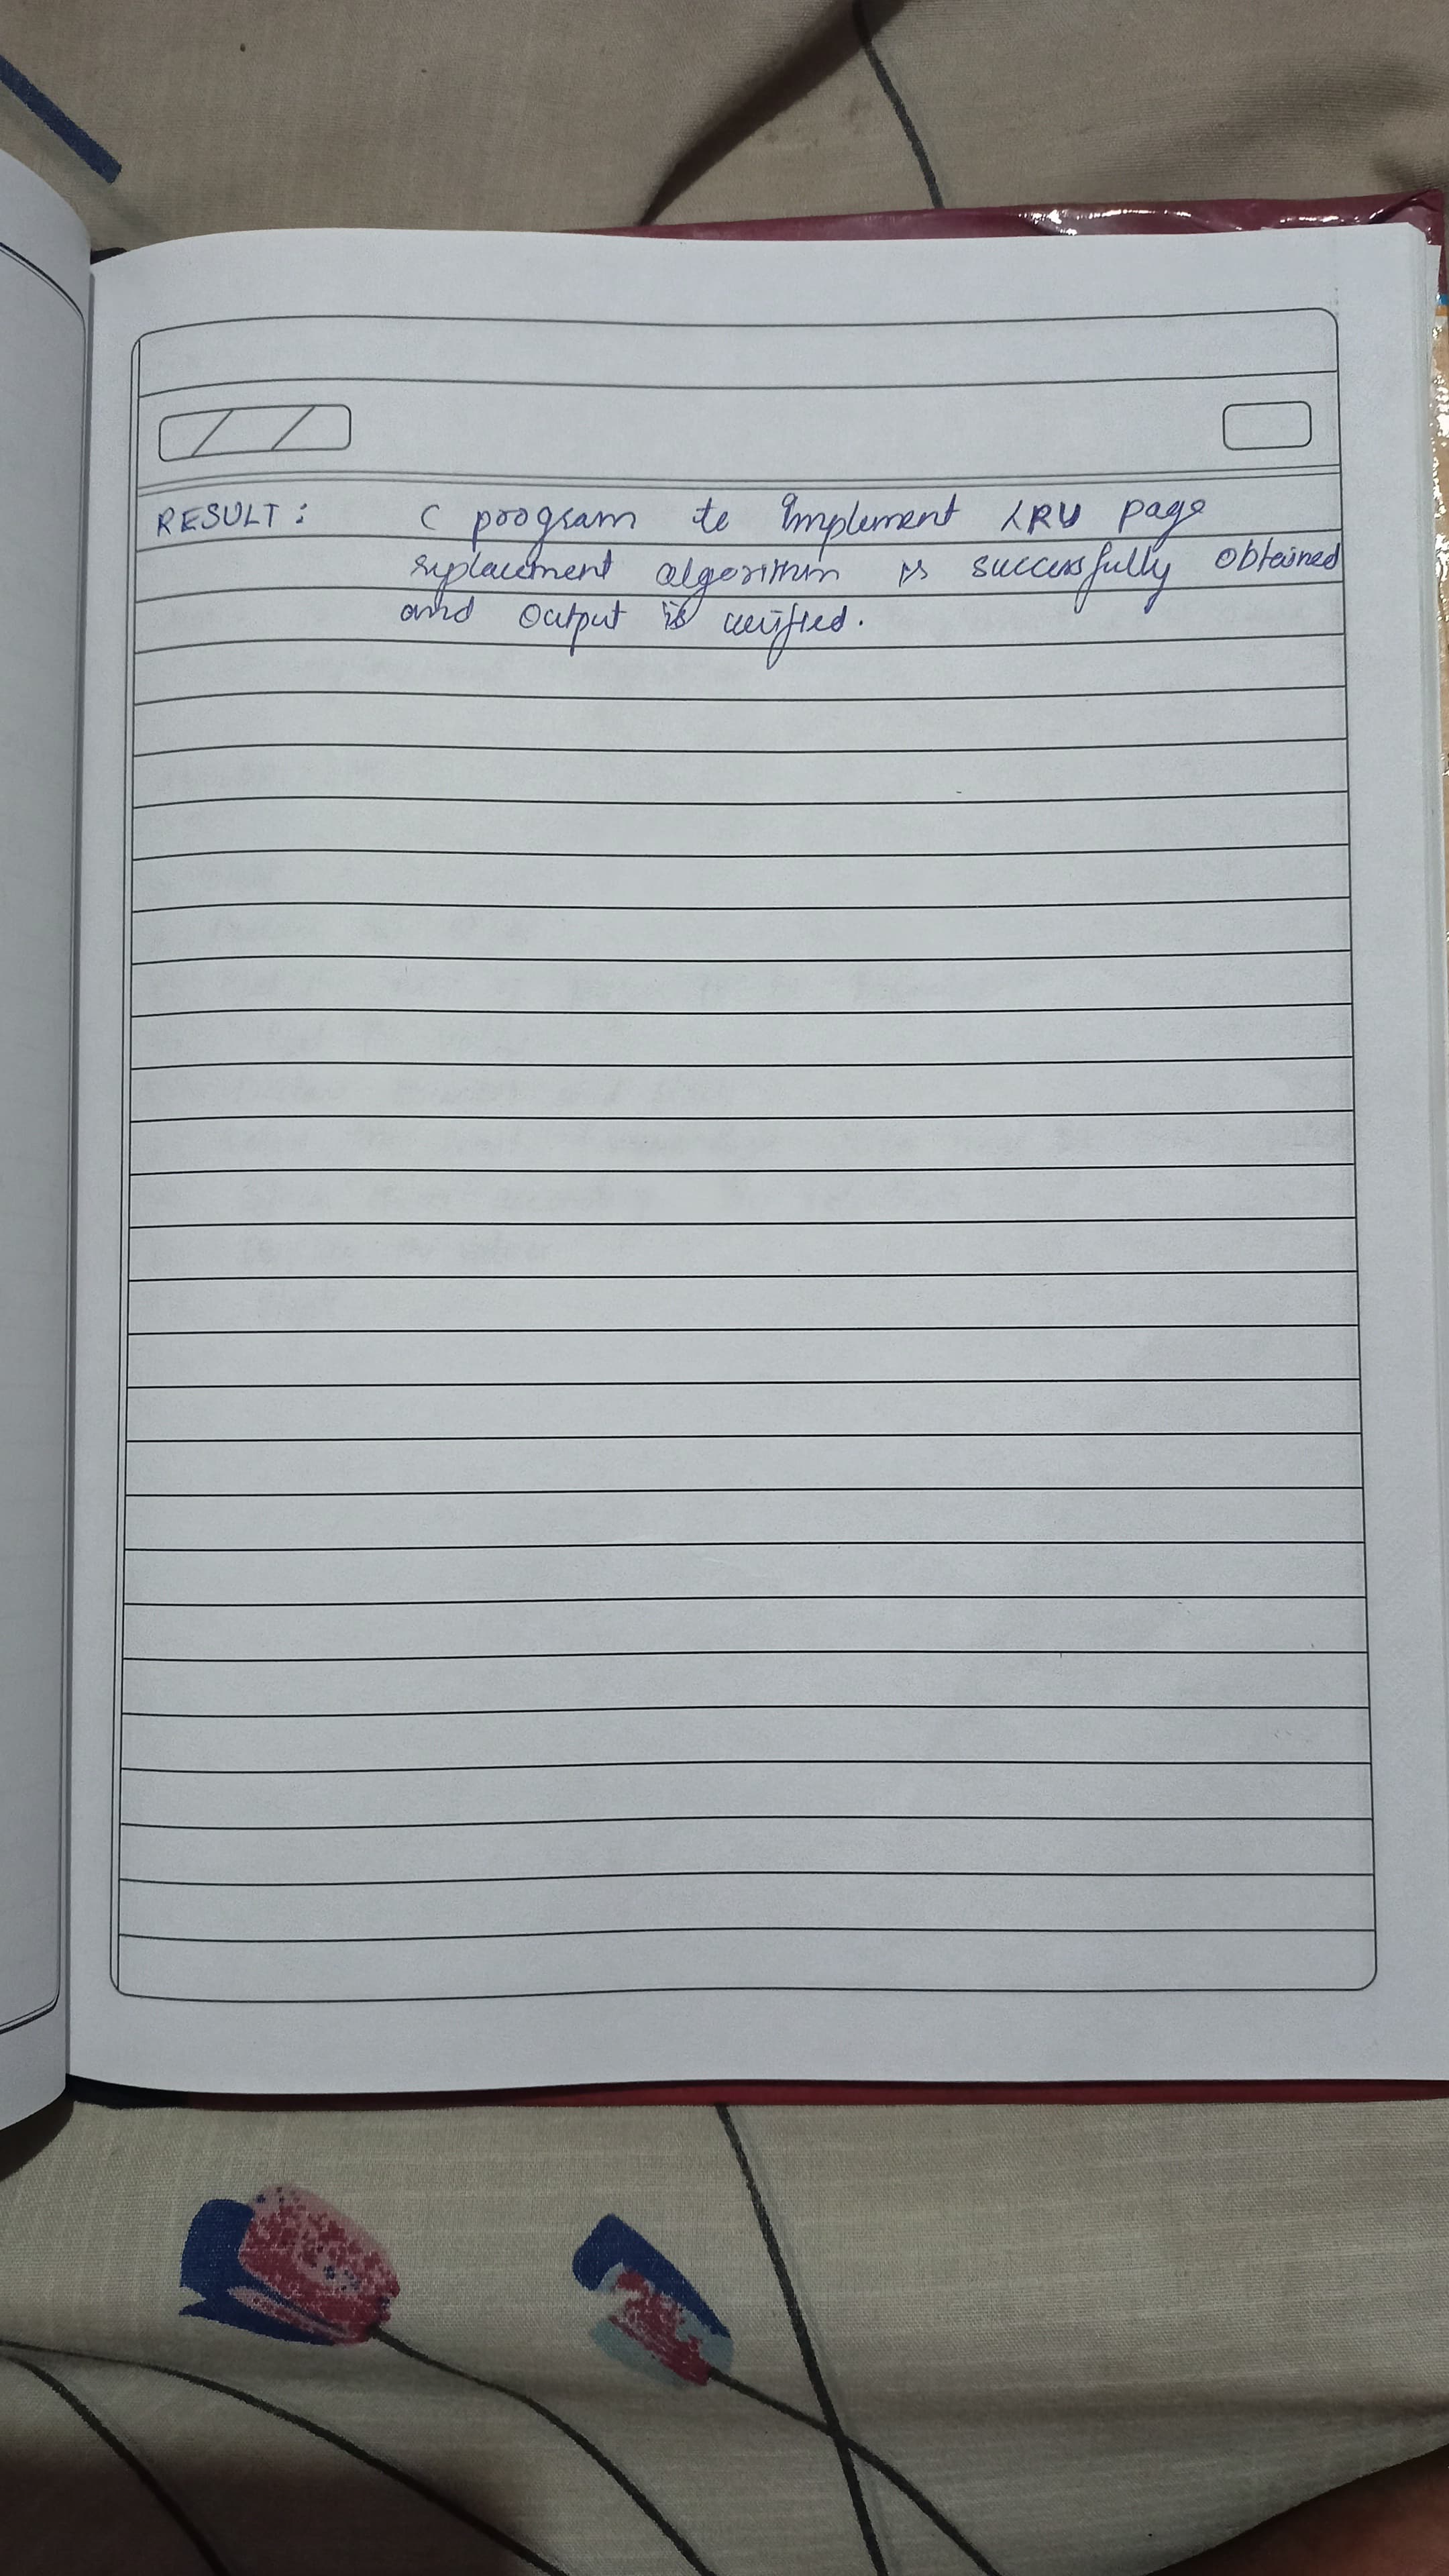 RESULT: C program to Implement LRU page
replacement algorithm is successfully obtained
and output is verified.